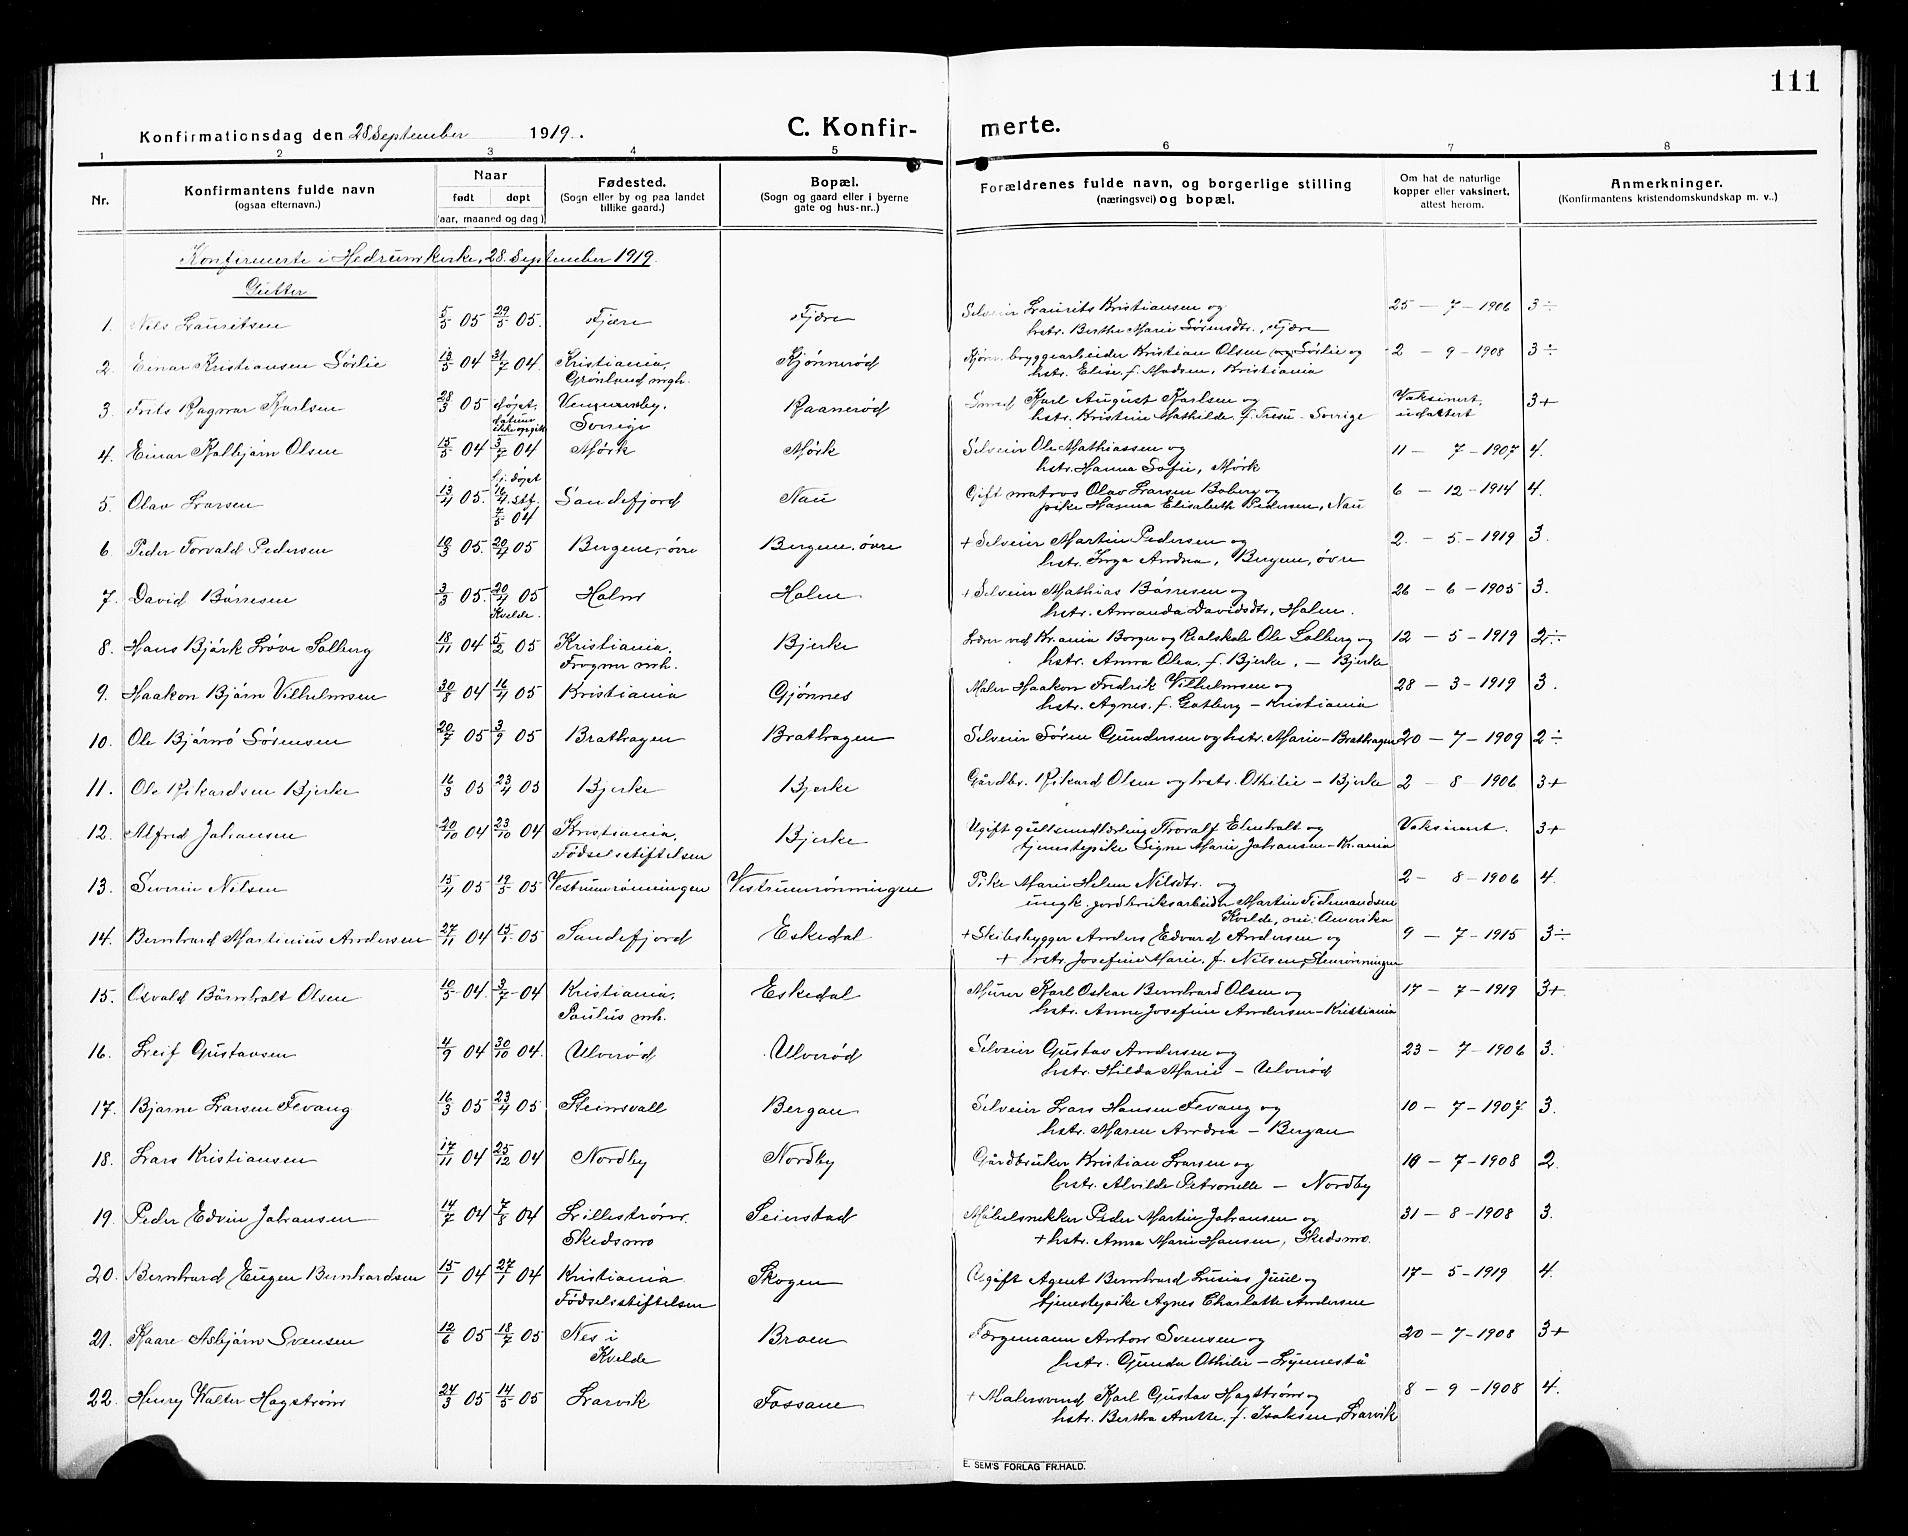 111
Konfirmationsdag den 28 September 1919.
C. Konfir- merte.
1 2 3 4 5 6 7 8
Nr.
Konfirmantens fulde navn
(ogsaa efternavn.)
Naar
født døpt
(aar, maaned og dag)
Fødested.
(Sogn eller by og paa landet
tillike gaard.)
Bopæl.
(Sogn og gaard eller i byerne
gate og hus-nr..)
Forældrenes fulde navn, og borgerlige stilling
(næringsvei) og bopæl.
Om hat de naturlige
kopper eller vaksinert,
attest herom.
Anmerkninger.
(Konfirmantens kristendomskundskap m. v..)
Konfirmerte i Hedrum kirke, 28. September 1919.
Gutter
1. Nils Lauritsen 5/5 05 29/5 05. Fjære Fjære Selveier Laurits Kristiansen og 25 - 7 - 1906 3÷
hstr. Berthe Marie Sørensdtr., Fjære
2. Einar Kristiansen Sørlie 13/5 04 31/7 04. Kristiania, Kjønnerød bryggearbeider Kristian Olsen Sørlie og 2 - 9 - 1908 3÷
Grønland mgh. hstr. Elise, f. Madsen, Kristiania
3. Frits Ragnar Karlsen 28/3 05 døpt, Raanerød Smed Karl August Karlsen og Vaksinert, 3+
datum ikke opgit Sverige hstr. Kristine Mathilde, f. - Sverige
4. Einar Kolbjørn Olsen 15/5 04 3/7 04 Mørk Mørk Selveier Ole Mathiassen og 11 - 7 - 1907 4.
hstr. Hanna Sofie, Mørk
5. Olav Larsen 13/4 05. hj. døpt 16/4 stf. 7/5 04 Sandefjord Nau Gift matros Olav Larsen Boberg og 6 - 12 - 1914 4.
pike Hanna Elisabeth Pedersen, Nau
6. Peder Torvald Pedersen 10/3 05. 20/4 05 Bergene, øvre Bergene, øvre + Selveier Martin Pedersen og 2. - 5 - 1919 3.
hstr. Inga Andrea, Bergene, øvre
7. David Børresen 3/3 05. 20/4 05 Holm Holm + Selveier Mathias Børresen og 26 - 6 - 1905 3.
Kvelde. hstr. Amanda Davidsdtr, Holm.
8. Hans Bjørk Løve Solberg 18/11 04 5/2 05 Kristiania, Bjerke Lærer ved Kr.ania Borger og Realskole Ole Solberg og 12 - 5 - 1919 2÷
Frogner mh. hstr. Anna Olea, f. Bjerke, - Bjerke
9. Haakon Bjørn Vilhelmsen 30/8 04 16/4 05 Kristiania Gjønnes Maler Haakon Fredrik Vilhelmsen og 28 - 3 - 1919 3.
hstr. Agnes, f. Gotberg - Kristiania
10. Ole Bjarne Sørensen 20/7 05 3/9 05 Brathagen Brathagen Selveier Søren Gundersen og hstr. Marie - Brathagen 20 - 7 - 1909 2÷
11. Ole Rikardsen Bjerke 16/3 05 23/4 05 Bjerke Bjerke Gårdbr. Rikard Olsen og hstr. Othilie - Bjerke 2 - 8 - 1906 3+
12. Alfred Johansen 20/10 04 23/10 04 Kristiania, Bjerke Ugift gullsmedlærling Thoralf Elmholt og Vaksinert. 3+
Fødselsstiftelsen tjenestepike Signe Marie Johansen - Kr.ania
13. Severin Nilsen 15/4 05 19/5 05 Vestrumrønningen Vestrumrønningen Pike Marie Helene Nilsdtr. og 2 - 8 - 1906 4.
ungk. jordbruksarbeider Martin Tidemandsen
Kvelde, nu: Amerika
14. Bernhard Martinius Andersen 27/11 04 15/1 05 Sandefjord Eskedal + Skibsbygger Anders Edvard Andersen og 9 - 7 - 1915 3÷
+ hstr. Josefine Marie, f. Nilsen, Stenrønningen
15. Osvald Bernholt Olsen 10/5 04 3/7 04 Kristiania, Eskedal Murer Karl Oskar Bernhard Olsen og 17 - 7 - 1919 3+
Paulus mh. hstr. Anne Josefine Andersen - Kristiania
16. Leif Gustavsen 4/9 04 30/10 04. Ulverød Ulverød Selveier Gustav Andersen og 23 - 7 - 1906 3.
hstr. Hilda Marie - Ulverød
17. Bjarne Larsen Fevang 16/3 05 23/4 05 Steinsvall Bergan Selveier Lars Hansen Fevang og 10 - 7 - 1907 3.
hstr. Maren Andrea - Bergan
18. Lars Kristiansen 17/11 04 25/12 04 Nordby Nordby Gårdbruker Kristian Larsen og 10 - 7 - 1908 2.
hstr. Alvilde Petronelle - Nordby
19. Peder Edvin Johansen 14/7 04 7/8 04 Lillestrøm, Seierstad Møbelsnekker Peder Martin Johansen og 31 - 8 - 1908 3.
Skedsmo + hstr. Anna Marie Hansen, Skedsmo.
20. Bernhard Eugen Bernhardsen 15/1 04 27/1 04 Kristiania Skogen Ugift Agent Bernhard Lusias Juul og 17 - 5 - 1919 4.
Fødselsstiftelsen tjenestepike Agnes Charlotte Andersen
21. Kaare Asbjørn Svensen 12/6 05 18/7 05 Nes i Broen Færgemann Anton Svensen og 20 - 7 - 1908 3+
Kvelde hstr. Gunda Othilie - Lynnestå
22. Henry Walter Hagstrøm 24/3 05 14/5 05 Larvik Fossane + Malersvend Karl Gustav Hagstrøm og 8 - 9 - 1908 4.
hstr. Bertha Anette, f. Isaksen, Larvik
E. SEM'S FORLAG FR.HALD.